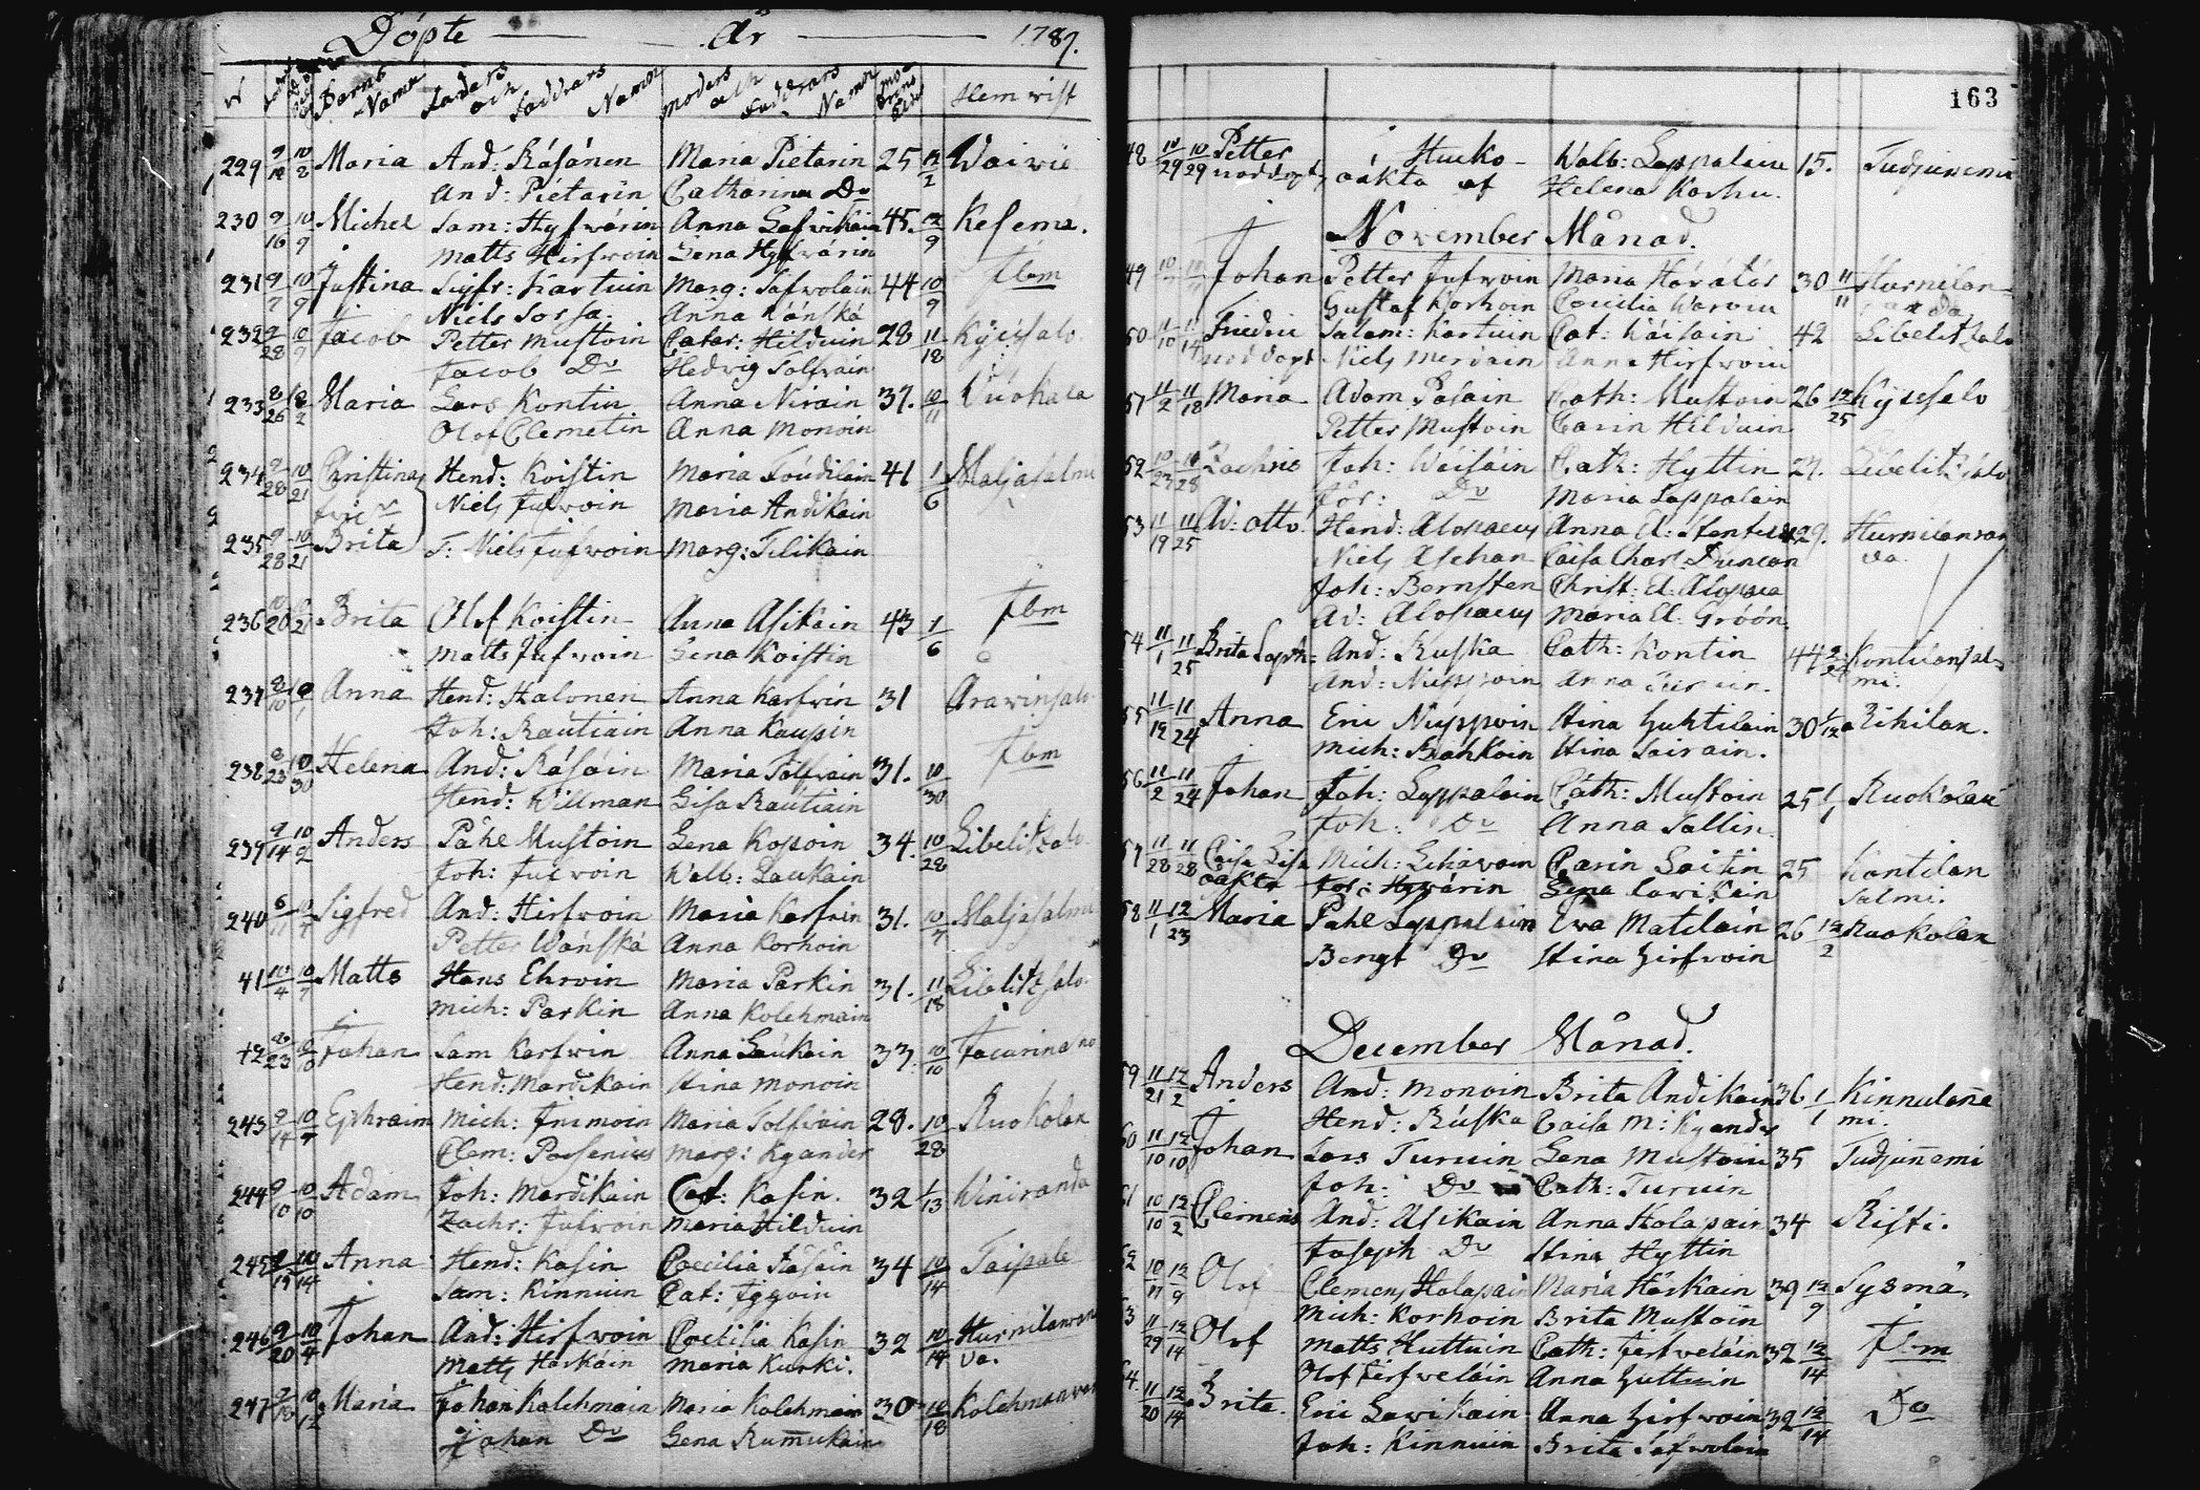 Döpte — År — 1789.
Barns Namn Faders och Faddrars Namn Moders och Faddrars Namn Hemwist
229 9/12 10/2 Maria And: Räsänen Maria Pietarin 25 12/2 Waiwio
And: Pietarin Catharina Do
230 9/16 10/9 Michel Sam: Hyfwärin Anna Lafwikain 45. 12/9 Kesemä.
Matts Hirfwoin Lena Hyfwärin
231 9/7 10/9 Justina Sigfr: Kartuin Marg: Safwolain 44 10/9 Ibm
Niels Sorsa. Anna Känskä
232 9/28 10/9 Jacob Petter Mustoin Catar: Hilduin 28 11/18 Kÿessalo.
Jacob Do Hedvig Tolfwain
233 8/26 Maria Lars Kontin Anna Nirain 37. 10/11
Olof Clemetin Anna Monoin
234 9/28 10/21 Christina Hend: Koistin Maria Toudilain 41 1/6 Maljasalmi
Niels Jufwoin Maria Andikain
235 9/28 10/21 Brita T: Niels Jufwoin Marg: Tilikain
236 10/20 10/21 Brita Olof Koistin Anna Asikain 43 1/6 Ibm
Matts Jufwoin Lena Koistin
237 Anna Hend: Halonen Anna Karfwin 31 Arawinsalo
Joh: Rautiain Anna Kaupin
238 10/30 Helena And: Räsäin Maria Tolfwain 31. 10/30 Ibm
Hend: Willman Lisa Rautiain
239 9/14 10/2 Anders Påhl Mustoin Lena Kopoin 34. 10/28 Libelitsalo
Joh: Jufwoin Walb: Laukain
240 Sigfred And: Hirfwoin Maria Karfwin 31. 10/7 Maljasalmi
Petter Wänskä Anna Korhoin
41 10/4 10/7 Matts Hans Ehrvin Maria Parkin 31. 11/18 Libelitsalo.
Mich: Parkin Anna Kolehmain
42 Johan Sam Karfwin Anna Laukain 33. 10/10
Hend: Mardikain Stina Monoin
243 9/14 10/7 Ephraim Mich: Immoin Maria Tolfwain 28. 10/28 Ruokolax
Clem: Possenius Marg: Kyander
244 9/10 10/10 Adam Joh: Mardikain Cat: Kasin. 32 1/13 Winiranda
Zachr: Jufwoin Maria Hilduin
245 9/19 10/14 Anna Hend: Kasin Coecilia Räsäin 34 10/14 Taipale
Sam: Kinnuin Cat: Iggoin
246 9/20 10/4 Johan And: Hirfwoin Coecilia Kasin 32 10/14 Hurnilanran
Matts Haskäin Maria Kurki. da.
247 Maria Johan Kolehmain Maria Kolehmain 30 10/18 Kolehmanwar
Johan Do Lena Rum̄ukain
163
48 10/29 10/29 Petter Hucko- Walb: Lappalain 15. Tudjun̄emi
nöddopt, oäkta af Helena Koshu.
November Månad.
49 Johan Petter Jufwoin Maria Härätär 30 11/11 Hurnilan-
Gustaf Korhoin Coecilia Waroin randa
50 11/10 11/14 Fredric Salom: Kartuin Cat: Wäisäin 42 Libelitzalo
nöddopt Niels Merdain Anna Hirfwoin
57 11/2 11/18 Maria Adam Pasain Cath: Mustoin 26 12/25 Kÿessalo
Petter Mustoin Carin Hilduin
52 10/23 10/28 Zachris Joh: Wäisäin Cath: Hyttin 27. Libelitzalo
Jör: Do Maria Lappalain
53 11/19 11/25 Ad: Otto. Hend: Alopaeus Anna El: Stenius 29. Hurnilanran
Niels Aschan Caisa Charl: Duncan da.
Joh: Bornsten Christ: El: Alopaea
Ad: Alopaeus Maria El: Gröön
54 11/1 11/25 Brita Soph: And: Ruska Cath: Kontin 44 Kontiansal-
And: Nuppoin Anna mi.
55 11/19 11/24 Anna Eric Nuppoin Stina Huhtilain 30 1/12 Riihilax.
Mich: Bahkoin Stina Sairain.
56 11/2 11/24 Johan Joh: Lappalain Cath: Mustoin 25 1/1 Ruokolax
Joh: Do Anna Sallin.
57 11/28 11/28 Caisa Lisa Mich: Lihawain Carin Laitin 25 Kontilan
oäkta Joh: Hywärin Lena Lawikain salmi.
58 11/1 12/23 Maria Påhl Lappalain Ewa Matilain 26 12/2 Ruokolax
Bengt Do Stina Hirfwoin
December Månad.
59 11/21 12/2 Anders And: Monoin Brita Andikain 36 1/1 Kinnulan̄e
Hend: Ruska Caisa M: Kyander mi.
60 11/10 12/10 Johan Lars Turuin Lena Mustoin 35 Tudjun̄emi
Joh: Do Cath: Turuin
61 10/10 12/2 Clemens And: Asikain Anna Holapain 34 Risti.
Joseph Do Stina Hyttin
62 10/11 12/9 Olof Clemens Holapain Maria Häskain 39 12/9 Sysmä.
Mich: Korhoin Brita Mustoin
63 11/29 12/14 Olof Matts Huttuin Cath: Tirfweläin 32 12/14 Ibm
Olof Tirfweläin Anna Huttuin
64 11/20 12/14 Brita. Eric Lawikain Anna Hirfwoin 32 12/14 Do
Joh: Kinnuin Brita Safwolain